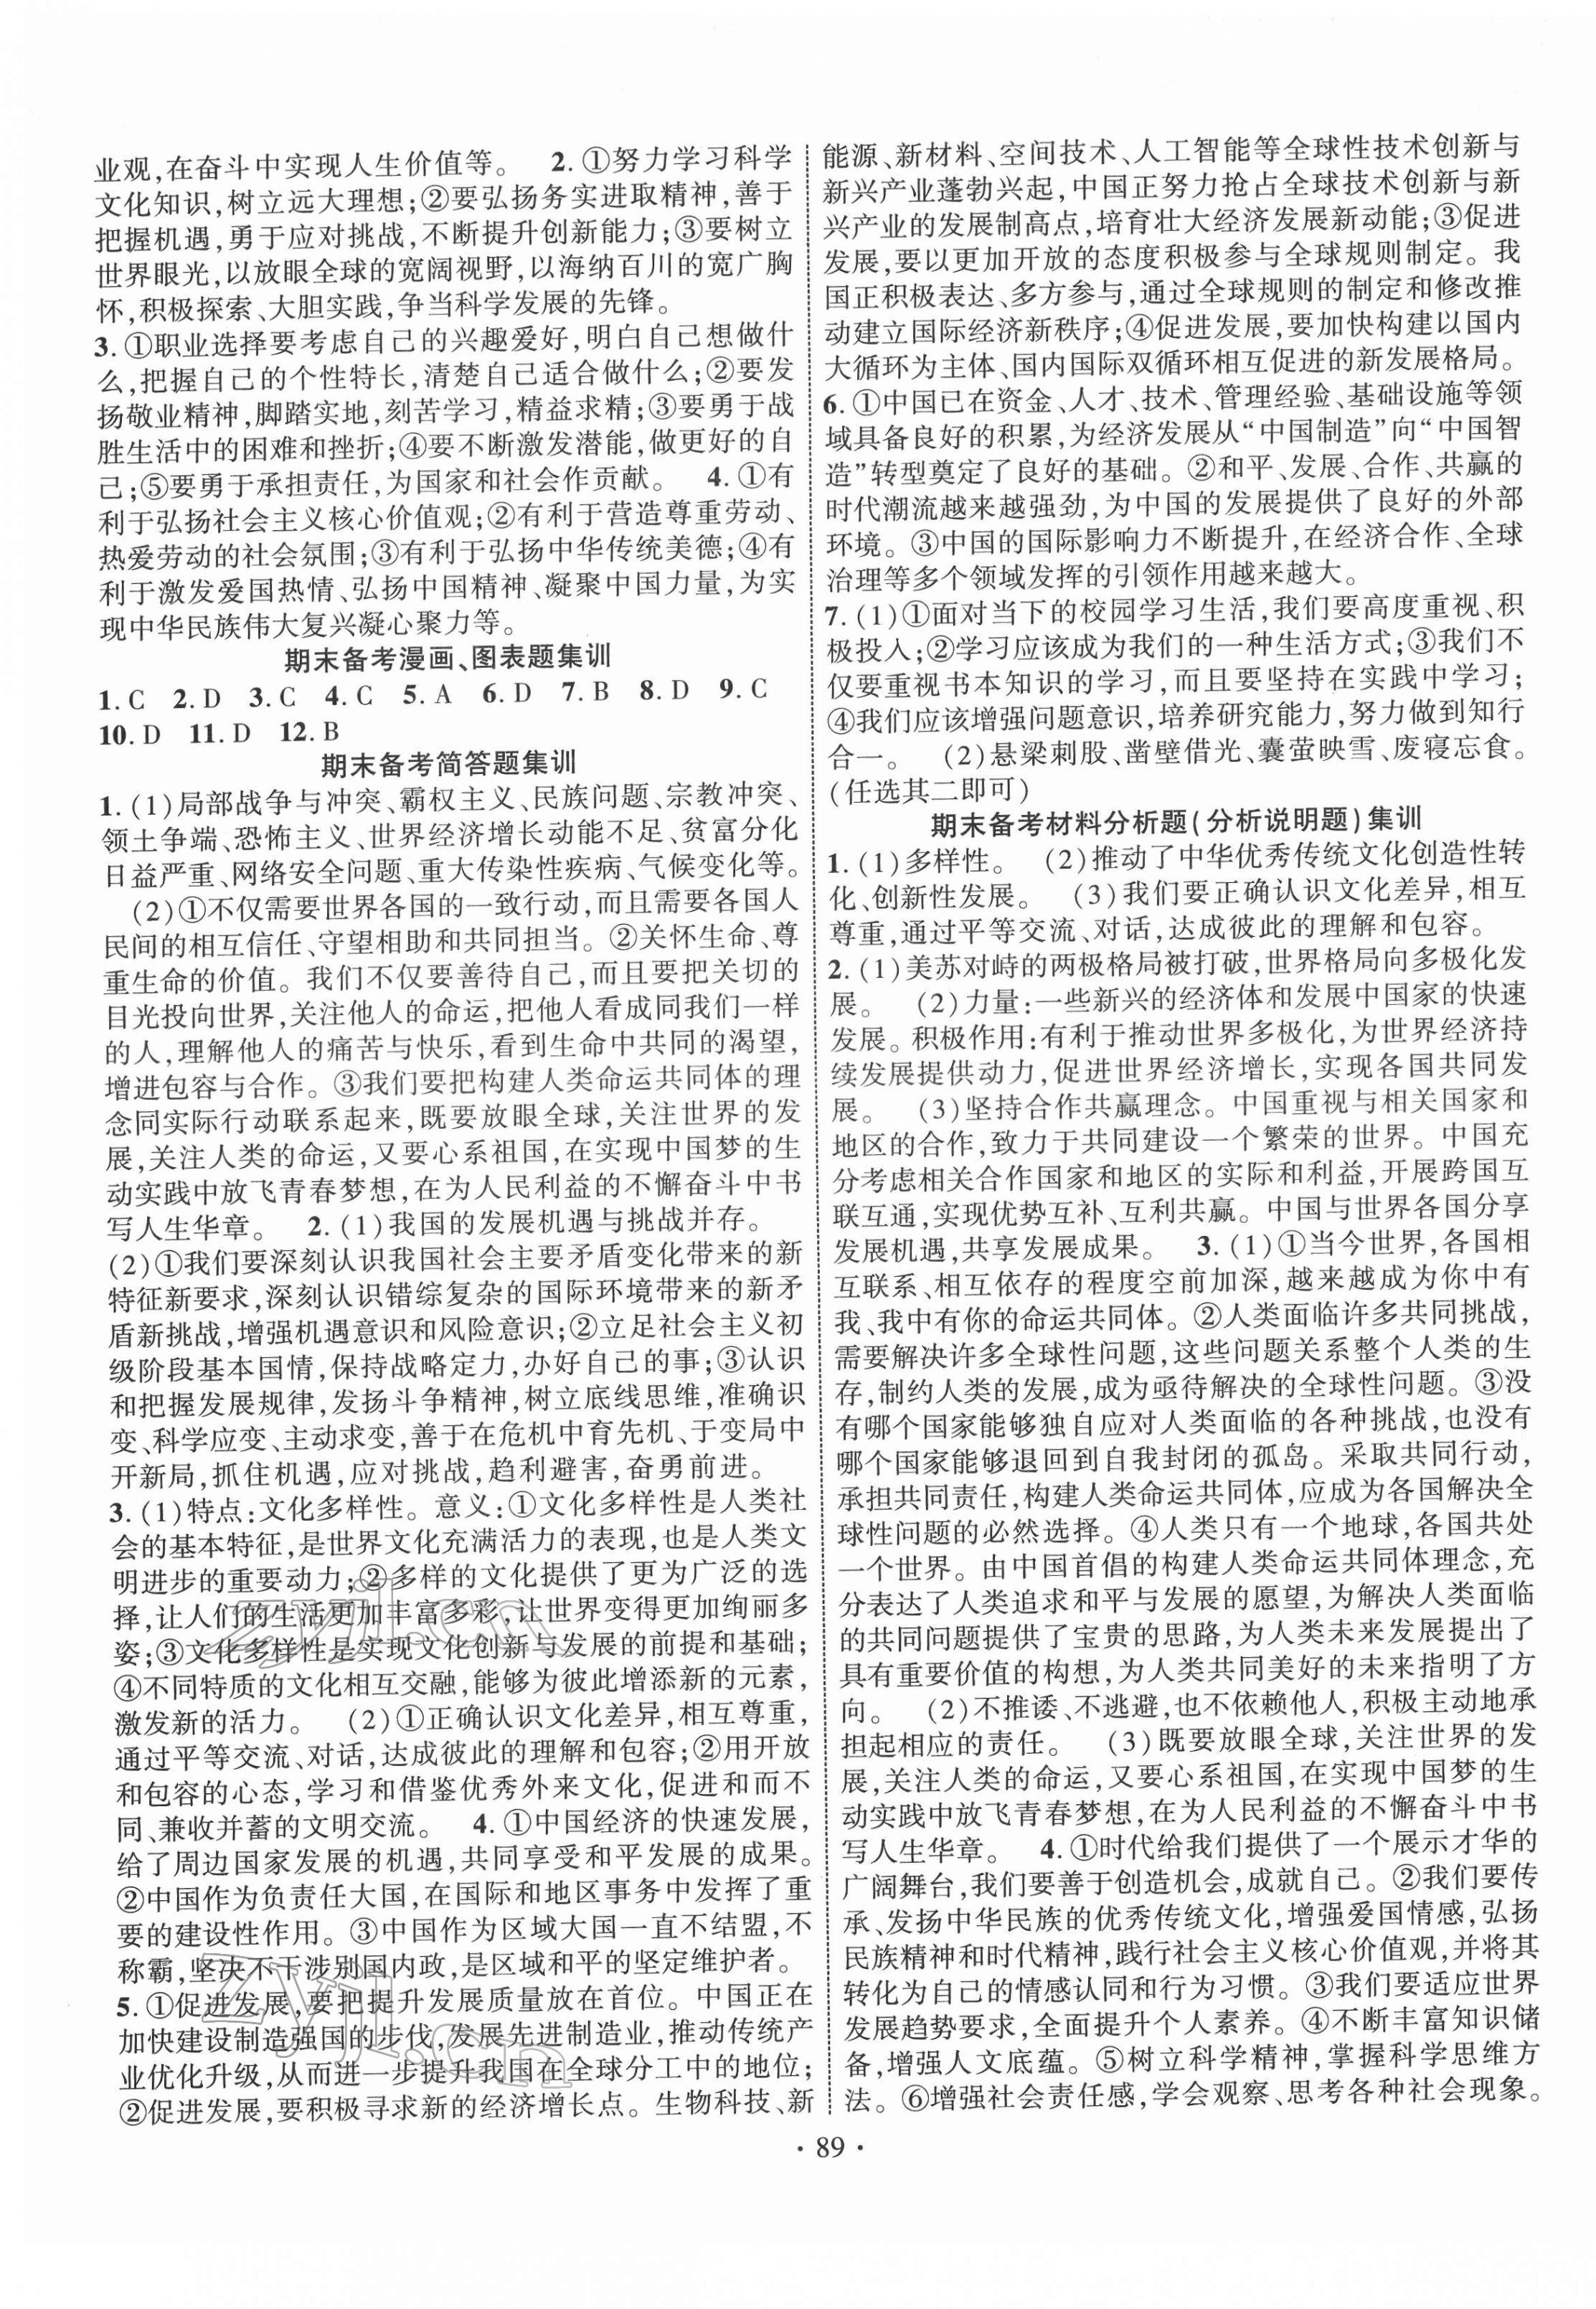 业观,在奋斗中实现人生价值等。 2. ①努力学习科学
文化知识,树立远大理想;②要弘扬务实进取精神,善于
把握机遇,勇于应对挑战,不断提升创新能力;③要树立
世界眼光,以放眼全球的宽阔视野,以海纳百川的宽广胸
怀,积极探索、大胆实践,争当科学发展的先锋。
3. ①职业选择要考虑自己的兴趣爱好,明白自己想做什
么,把握自己的个性特长,清楚自己适合做什么;②要发
扬敬业精神,脚踏实地,刻苦学习,精益求精;③要勇于战
胜生活中的困难和挫折;④要不断激发潜能,做更好的自
己;⑤要勇于承担责任,为国家和社会作贡献。 4. ①有
利于弘扬社会主义核心价值观;②有利于营造尊重劳动、
热爱劳动的社会氛围;③有利于弘扬中华传统美德;④有
利于激发爱国热情、弘扬中国精神、凝聚中国力量,为实
现中华民族伟大复兴凝心聚力等。
期末备考漫画、图表题集训
1. C 2. D 3. C 4. C 5. A 6. D 7. B 8. D 9. C
10. D 11. D 12. B
期末备考简答题集训
1. (1)局部战争与冲突、霸权主义、民族问题、宗教冲突、
领土争端、恐怖主义、世界经济增长动能不足、贫富分化
日益严重、网络安全问题、重大传染性疾病、气候变化等。
(2)①不仅需要世界各国的一致行动,而且需要各国人
民间的相互信任、守望相助和共同担当。②关怀生命、尊
重生命的价值。我们不仅要善待自己,而且要把关切的
目光投向世界,关注他人的命运,把他人看成同我们一样
的人,理解他人的痛苦与快乐,看到生命中共同的渴望,
增进包容与合作。③我们要把构建人类命运共同体的理
念同实际行动联系起来,既要放眼全球,关注世界的发
展,关注人类的命运,又要心系祖国,在实现中国梦的生
动实践中放飞青春梦想,在为人民利益的不懈奋斗中书
写人生华章。 2. (1)我国的发展机遇与挑战并存。
(2)①我们要深刻认识我国社会主要矛盾变化带来的新
特征新要求,深刻认识错综复杂的国际环境带来的新矛
盾新挑战,增强机遇意识和风险意识;②立足社会主义初
级阶段基本国情,保持战略定力,办好自己的事;③认识
和把握发展规律,发扬斗争精神,树立底线思维,准确识
变、科学应变、主动求变,善于在危机中育先机、于变局中
开新局,抓住机遇,应对挑战,趋利避害,奋勇前进。
3. (1)特点:文化多样性。意义:①文化多样性是人类社
会的基本特征,是世界文化充满活力的表现,也是人类文
明进步的重要动力;②多样的文化提供了更为广泛的选
择,让人们的生活更加丰富多彩,让世界变得更加绚丽多
姿;③文化多样性是实现文化创新与发展的前提和基础;
④不同特质的文化相互交融,能够为彼此增添新的元素,
激发新的活力。 (2)①正确认识文化差异,相互尊重,
通过平等交流、对话,达成彼此的理解和包容;②用开放
和包容的心态,学习和借鉴优秀外来文化,促进和而不
同、兼收并蓄的文明交流。 4. ①中国经济的快速发展,
给了周边国家发展的机遇,共同享受和平发展的成果。
②中国作为负责任大国,在国际和地区事务中发挥了重
要的建设性作用。③中国作为区域大国一直不结盟,不
称霸,坚决不干涉别国内政,是区域和平的坚定维护者。
5. ①促进发展,要把提升发展质量放在首位。中国正在
加快建设制造强国的步伐,发展先进制造业,推动传统产
业优化升级,从而进一步提升我国在全球分工中的地位;
②促进发展,要积极寻求新的经济增长点。生物科技、新
能源、新材料、空间技术、人工智能等全球性技术创新与
新兴产业蓬勃兴起,中国正努力抢占全球技术创新与新
兴产业的发展制高点,培育壮大经济发展新动能;③促进
发展,要以更加开放的态度积极参与全球规则制定。我
国正积极表达、多方参与,通过全球规则的制定和修改推
动建立国际经济新秩序;④促进发展,要加快构建以国内
大循环为主体、国内国际双循环相互促进的新发展格局。
6. ①中国已在资金、人才、技术、管理经验、基础设施等领
域具备良好的积累,为经济发展从“中国制造”向“中国智
造”转型奠定了良好的基础。②和平、发展、合作、共赢的
时代潮流越来越强劲,为中国的发展提供了良好的外部
环境。③中国的国际影响力不断提升,在经济合作、全球
治理等多个领域发挥的引领作用越来越大。
7. (1)①面对当下的校园学习生活,我们要高度重视、积
极投入;②学习应该成为我们的一种生活方式;③我们不
仅要重视书本知识的学习,而且要坚持在实践中学习;
④我们应该增强问题意识,培养研究能力,努力做到知行
合一。 (2)悬梁刺股、凿壁借光、囊萤映雪、废寝忘食。
(任选其二即可)
期末备考材料分析题(分析说明题)集训
1. (1)多样性。 (2)推动了中华优秀传统文化创造性转
化、创新性发展。 (3)我们要正确认识文化差异,相互
尊重,通过平等交流、对话,达成彼此的理解和包容。
2. (1)美苏对峙的两极格局被打破,世界格局向多极化发
展。 (2)力量:一些新兴的经济体和发展中国家的快速
发展。积极作用:有利于推动世界多极化,为世界经济持
续发展提供动力,促进世界经济增长,实现各国共同发
展。 (3)坚持合作共赢理念。中国重视与相关国家和
地区的合作,致力于共同建设一个繁荣的世界。中国充
分考虑相关合作国家和地区的实际和利益,开展跨国互
联互通,实现优势互补、互利共赢。中国与世界各国分享
发展机遇,共享发展成果。 3. (1)①当今世界,各国相
互联系、相互依存的程度空前加深,越来越成为你中有
我、我中有你的命运共同体。②人类面临许多共同挑战,
需要解决许多全球性问题,这些问题关系整个人类的生
存,制约人类的发展,成为亟待解决的全球性问题。③没
有哪个国家能够独自应对人类面临的各种挑战,也没有
哪个国家能够退回到自我封闭的孤岛。采取共同行动,
承担共同责任,构建人类命运共同体,应成为各国解决全
球性问题的必然选择。④人类只有一个地球,各国共处
一个世界。由中国首倡的构建人类命运共同体理念,充
分表达了人类追求和平与发展的愿望,为解决人类面临
的共同问题提供了宝贵的思路,为人类未来发展提出了
具有重要价值的构想,为人类共同美好的未来指明了方
向。 (2)不推诿、不逃避,也不依赖他人,积极主动地承
担起相应的责任。 (3)既要放眼全球,关注世界的发
展,关注人类的命运,又要心系祖国,在实现中国梦的生
动实践中放飞青春梦想,在为人民利益的不懈奋斗中书
写人生华章。 4. ①时代给我们提供了一个展示才华的
广阔舞台,我们要善于创造机会,成就自己。②我们要传
承、发扬中华民族的优秀传统文化,增强爱国情感,弘扬
民族精神和时代精神,践行社会主义核心价值观,并将其
转化为自己的情感认同和行为习惯。③我们要适应世界
发展趋势要求,全面提升个人素养。④不断丰富知识储
备,增强人文底蕴。⑤树立科学精神,掌握科学思维方
法。⑥增强社会责任感,学会观察、思考各种社会现象。
· 89 ·
zyjl.cn
zyjl.cn